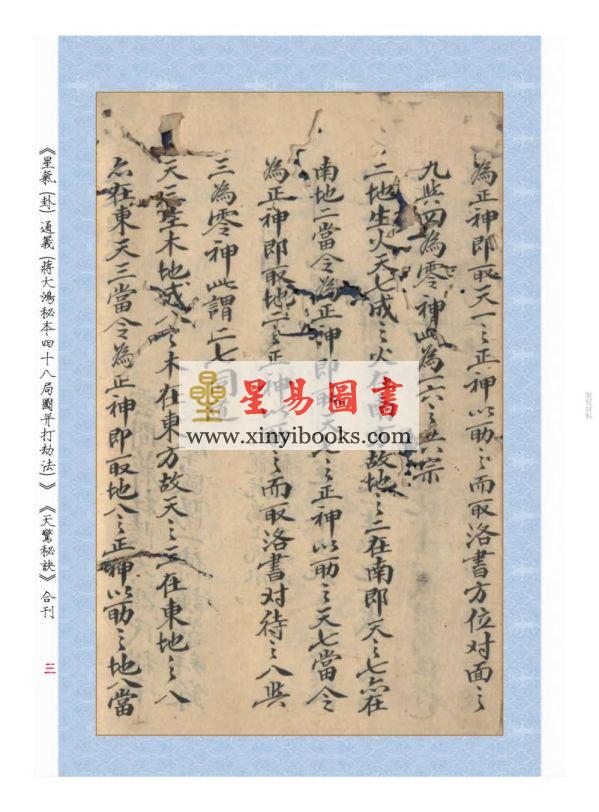 為正神即取天一之正神以助之而取洛書方位对面之
九與四為零神此為一六之共宗
二地生火天七成之火在南方故地之二在南即天之七亦在
南地二當令為正神即取天七之正神以助之天七當令
為正神即取地二之正神以助之而取洛書对待之八與
三為零神此謂二七同道
天三生木地成八之木在東方故天之三在東地之八
亦在東天三當令為正神即取地八之正神以助之地八當
星易圖書
www.xinyibooks.com
《星氣(卦)通義(蔣大鴻秘本四十八局圖并打劫法)》《天驚秘訣》合刊
三
版權材料